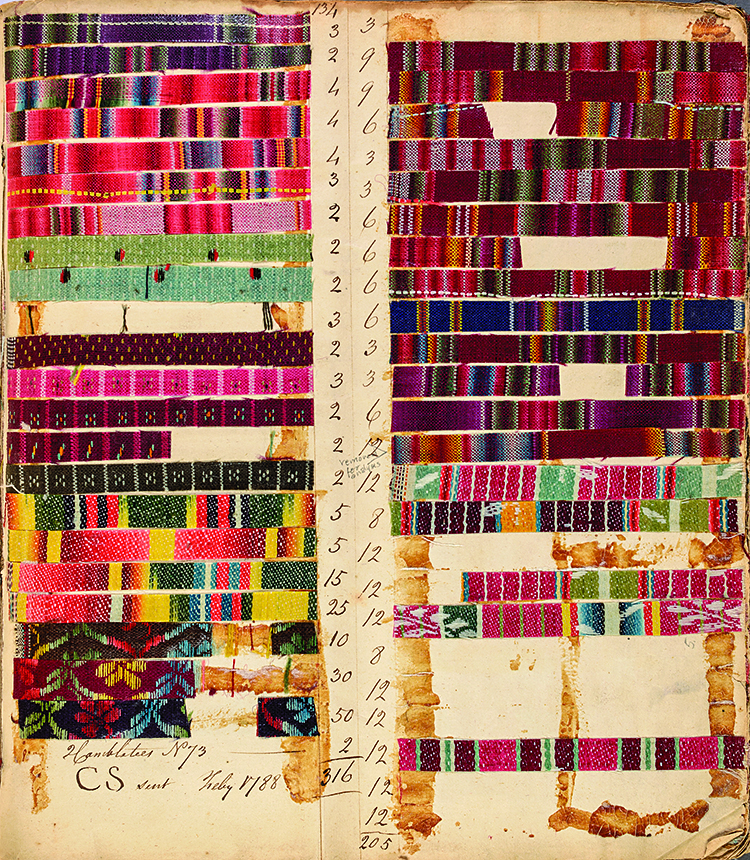 134
3
2
4
4
4
3
2
2
2
3
2
3
2
2
2
5
5
15
25
10
30
50
N°73 2
316
CS sent Feby 1788
3
9
9
6
3
3
6
6
6
6
3
3
6
12
removed
for
analysis
12
8
12
12
12
8
12
12
12
12
12
205